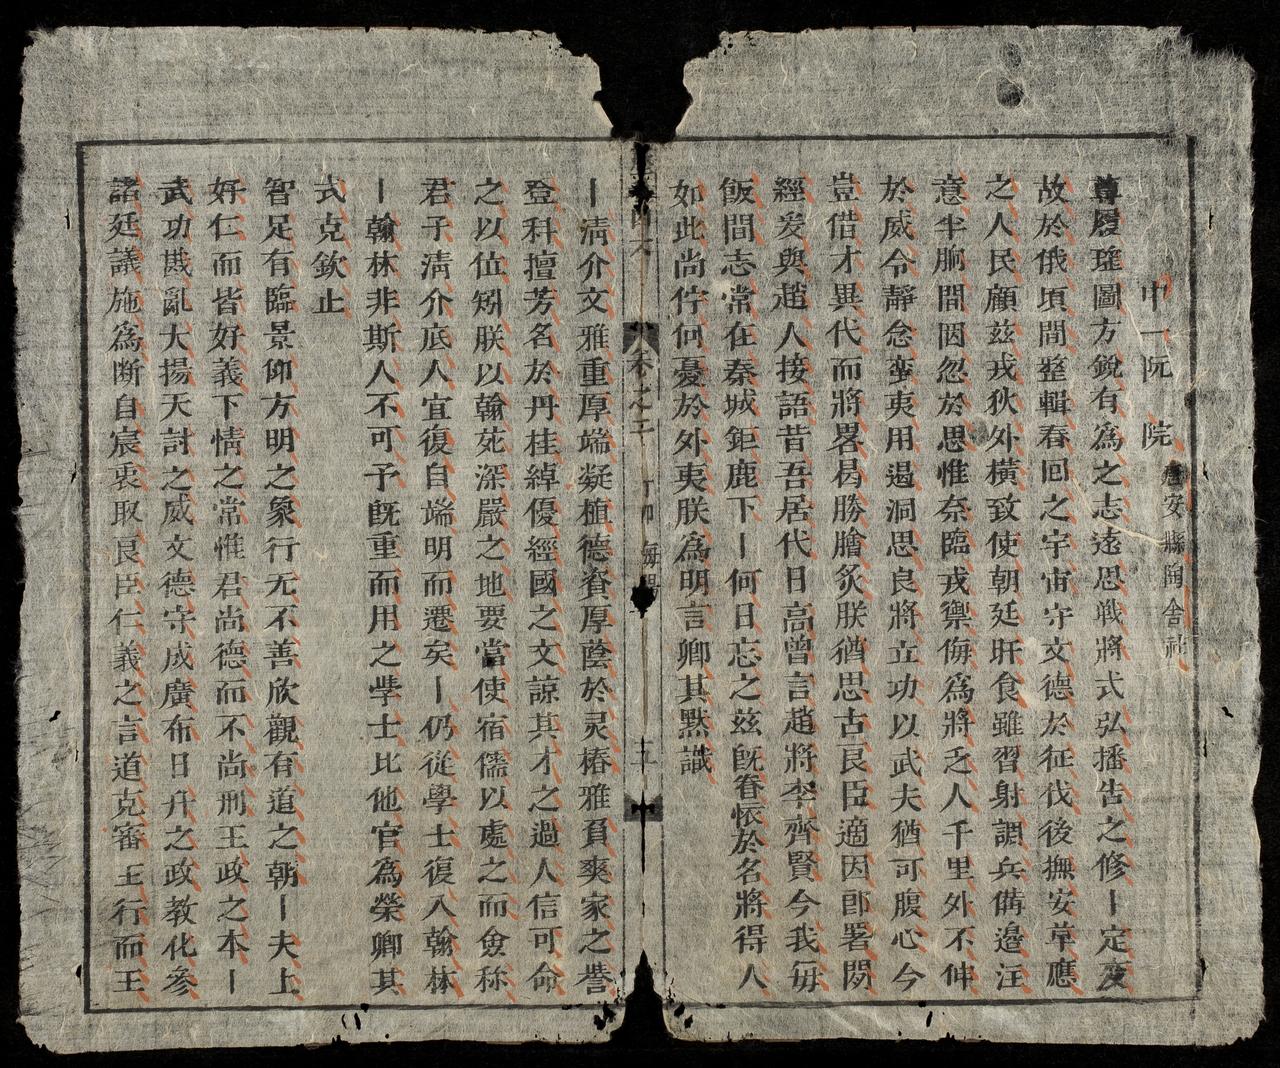 中一阮院 唐安縣陶舍社
尊履瑤圖方銳有爲之志遠思戦將式弘播告之修｜定変
故於俄頃間整輯春回之宇宙守文德於征伐後撫安草應
之人民顧兹戎狄外橫致使朝廷旰食雖習射調兵備邊注
意半胸間因忽於思惟奈臨戎禦侮爲將乏人千里外不伸
於威令靜念蛮夷用遏洞思良將立功以武夫猶可腹心今
豈借才異代而將畧曷勝膾炙朕猶思古良臣適因郎署閔
經爰與趙人接語昔吾居代日高曾言趙將李齊賢今我每
飯間志常在秦城鉅鹿下｜何日忘之兹旣眷懷於名將得人
如此尚佇何憂於外夷朕爲明言卿其黙識
卷之二 五
｜清介文雅重厚端凝植德資厚蔭於灵椿雅負奭家之誉
登科擅芳名於丹桂綽優經國之文諒其才之過人信可命
之以位矧朕以翰苑深嚴之地要當使宿儒以處之而僉称
君子清介底人宜復自端明而遷矣｜仍從學士復入翰林
｜翰林非斯人不可予旣重而用之斈士比他官爲榮卿其
式克欽止
智足有臨景仰方明之象行无不善欣觀有道之朝｜夫上
好仁而皆好義下情之常惟君尚德而不尚刑王政之本｜
武功戡亂大揚天討之威文德守成廣布日升之政教化參
諸廷議施爲断自宸衷取良臣仁義之言道克審王行而王